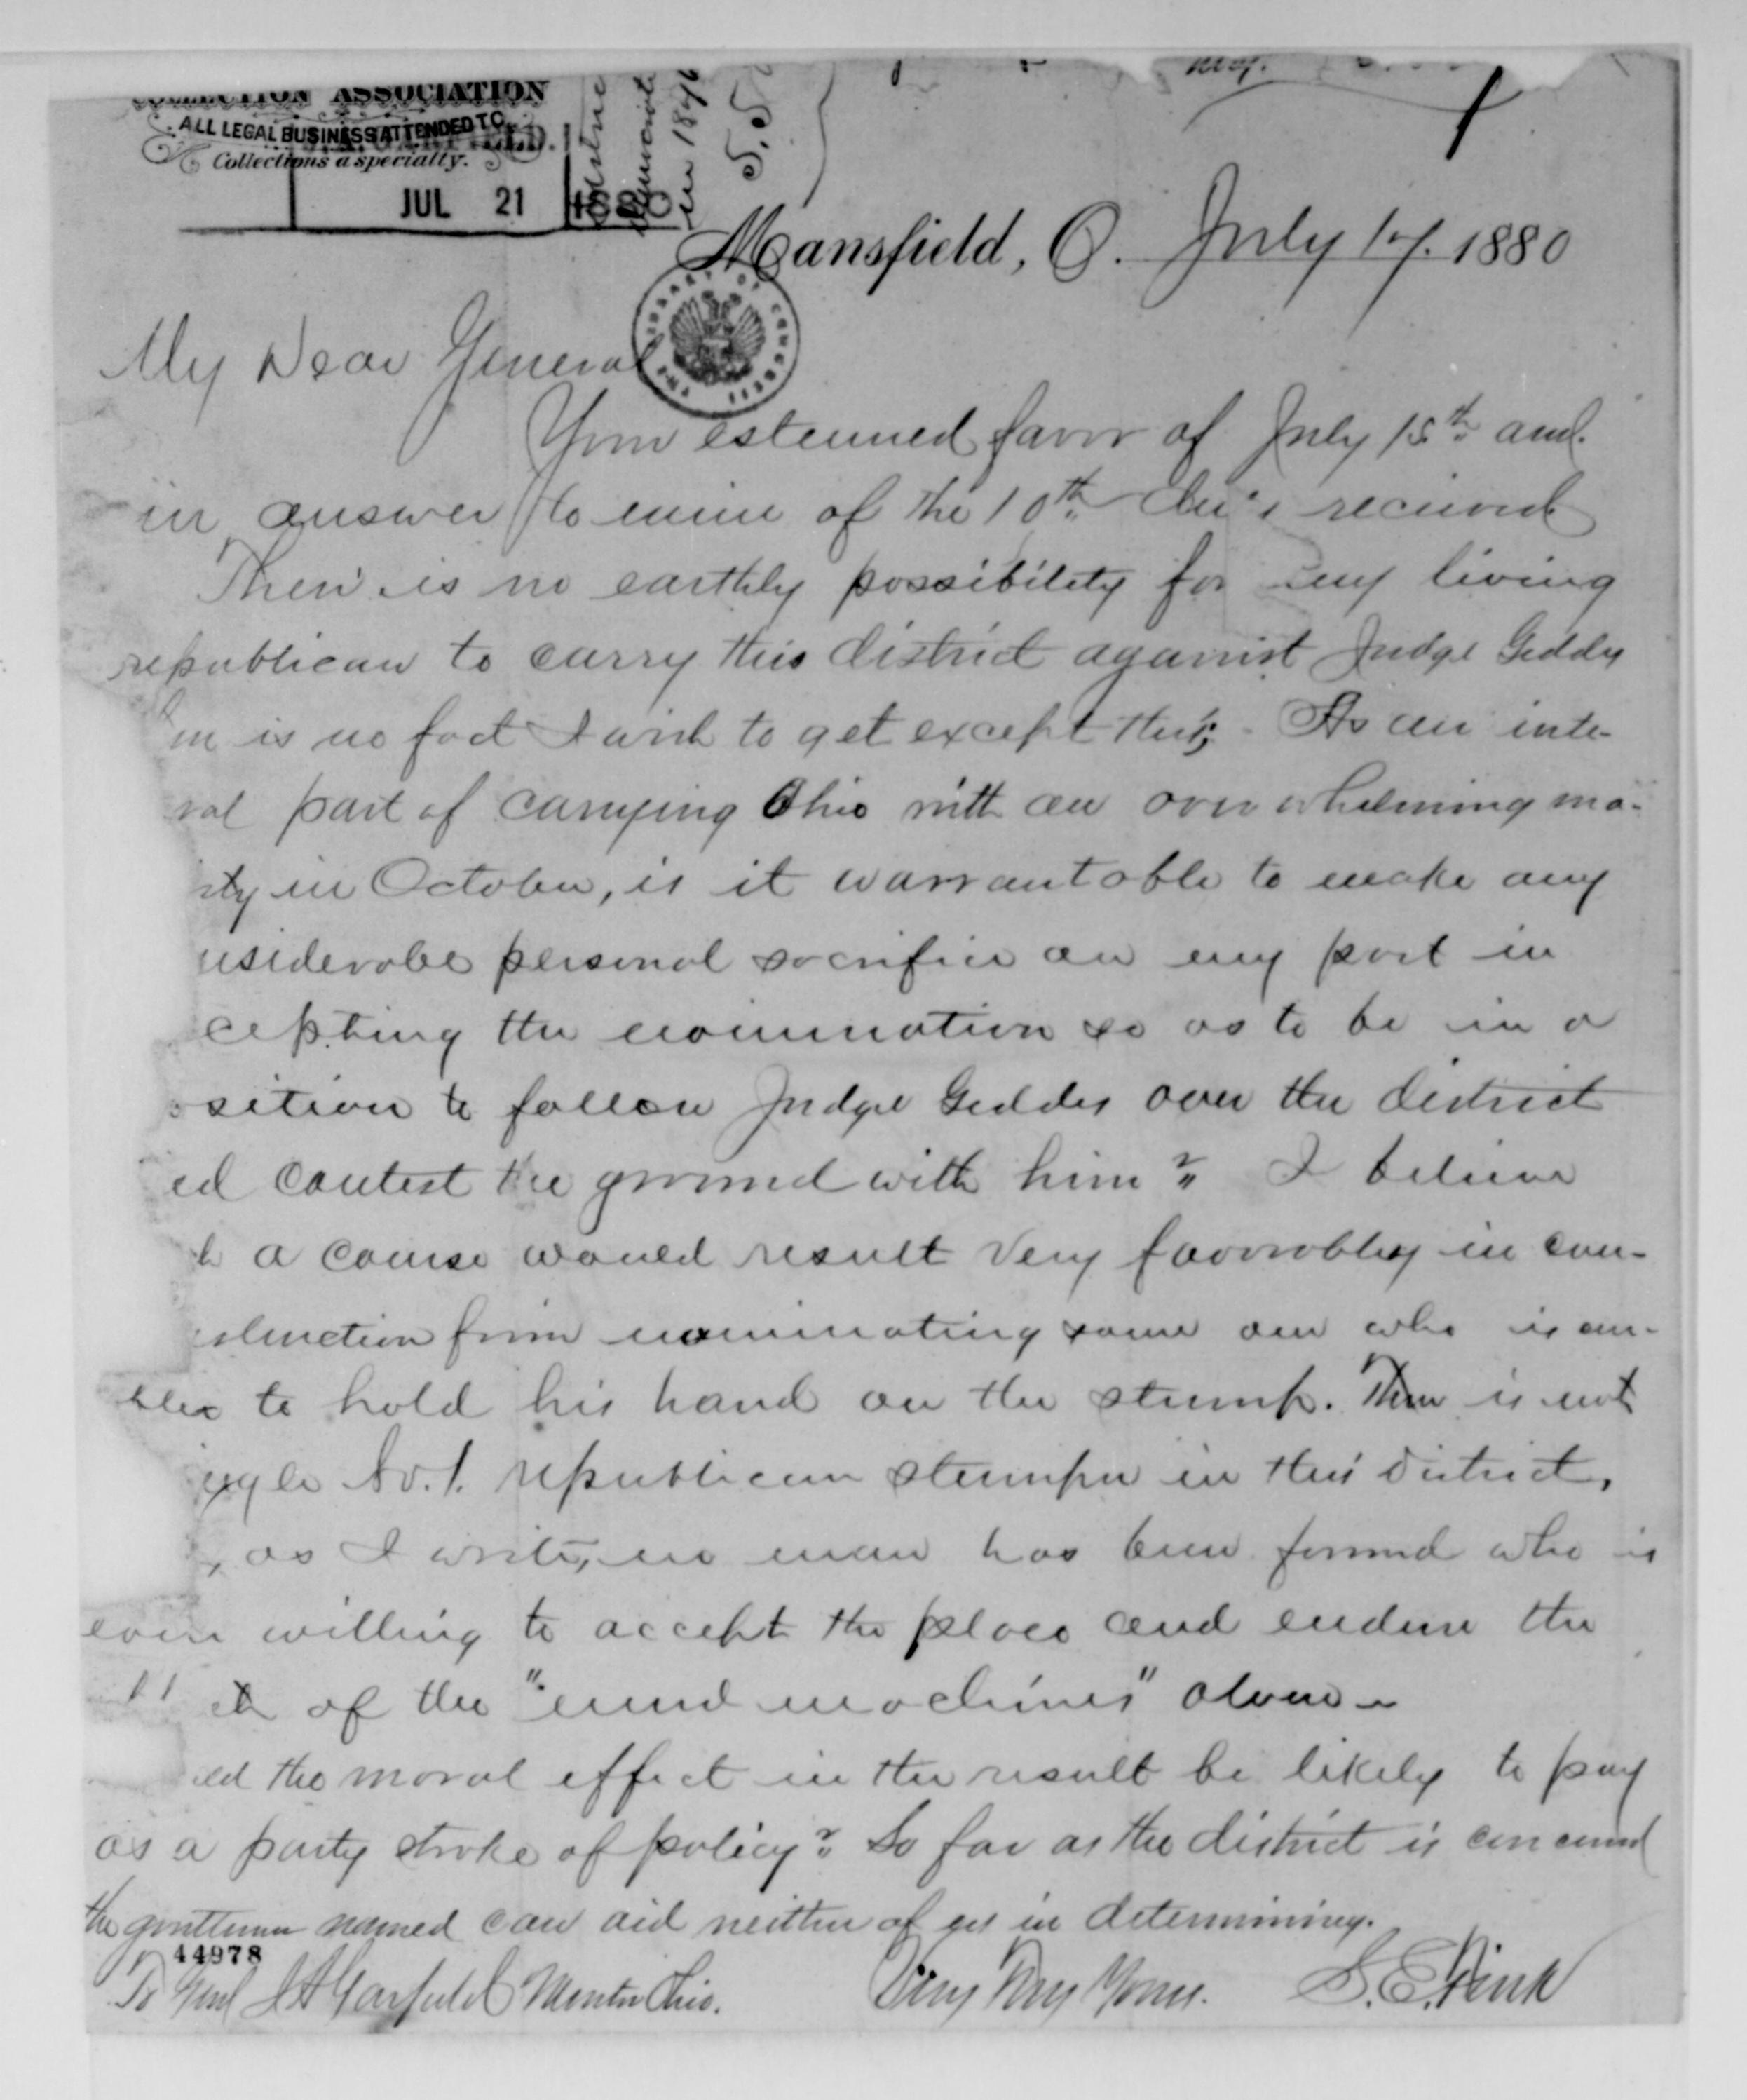 COLLECTION ASSOCIATION
ALL LEGAL BUSINESS ATTENDED TO.
Collections a specialty.
JUL 21 1880
Mansfield, O. July 17. 1880
THE LIBRARY OF CONGRESS
My Dear General
Your esteemed favor of July 15th and
in answer to mine of the 10th received
There is no earthly possibility for any living
republican to carry this district against Judge Geddes
is no fact I wish to get except this; - As an inte-
ral part of carrying Ohio with an overwhelming ma-
ity in October, is it warrantable to make any
nsiderable personal sacrifice on my part in
cepting the nomination so as to be in a
osition to follow Judge Geddes over the district
ed contest the ground with him? I believe
h a course would result very favorably in con-
from nominating some one who is un-
able to hold his hand on the stump. There is not
ngle No. 1. republican stumper in this district,
, as I write, no man has been found who is
even willing to accept the place and endure the
of the "mud machines" alone -
ld the moral effect in the result be likely to pay
as a party stroke of policy? So far as the district is concerned
the gentlemen named can aid neither of us in determining.
44978
To Genl J A Garfield Mentor Ohio.
Very Truly Yours.